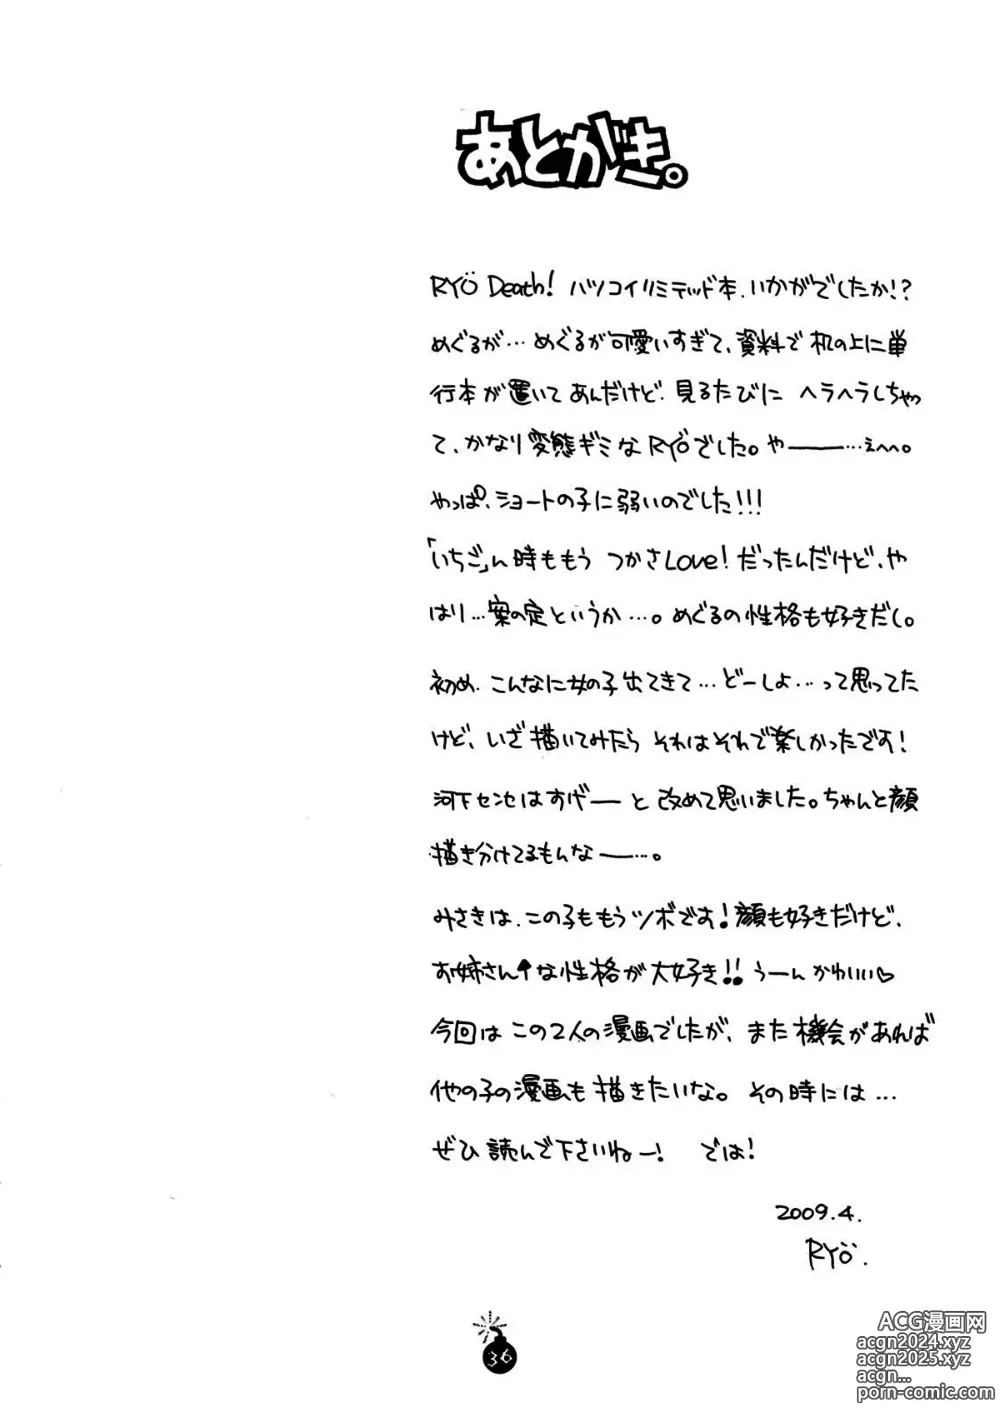 あとがき。
RYÖ Death! ハツコイリミテッド本、いかがでしたか!?
めぐるが…めぐるが可愛いすぎて、資料で机の上に単
行本が置いてあんだけど、見るたびに ヘラヘラしちゃっ
て、かなり変態ギミなRYÖでした。やー――…えへへ。
やっぱ、ショートの子に弱いのでした!!!
「いちご」ん時ももう つかさLove! だったんだけど、や
はり…案の定というか…。めぐるの性格も好きだし。
初め、こんなに女の子出てきて…どーしよ…って思ってた
けど、いざ描いてみたら それはそれで楽しかったです!
河下センセはすげーと改めて思いました。ちゃんと顔
描き分けてるもんなー…。
みさきは、この子ももうツボです!顔も好きだけど、
お姉さん↑な性格が大好き!! うーん かわいい♡
今回は この2人の漫画でしたが、また機会があれば
他の子の漫画も 描きたいな。その時には…
ぜひ読んで下さいねー! では!
2009.4.
RYÖ.
36
ACG漫画网
acgn2024.xyz
acgn2025.xyz
acgn...
porn-comic.com